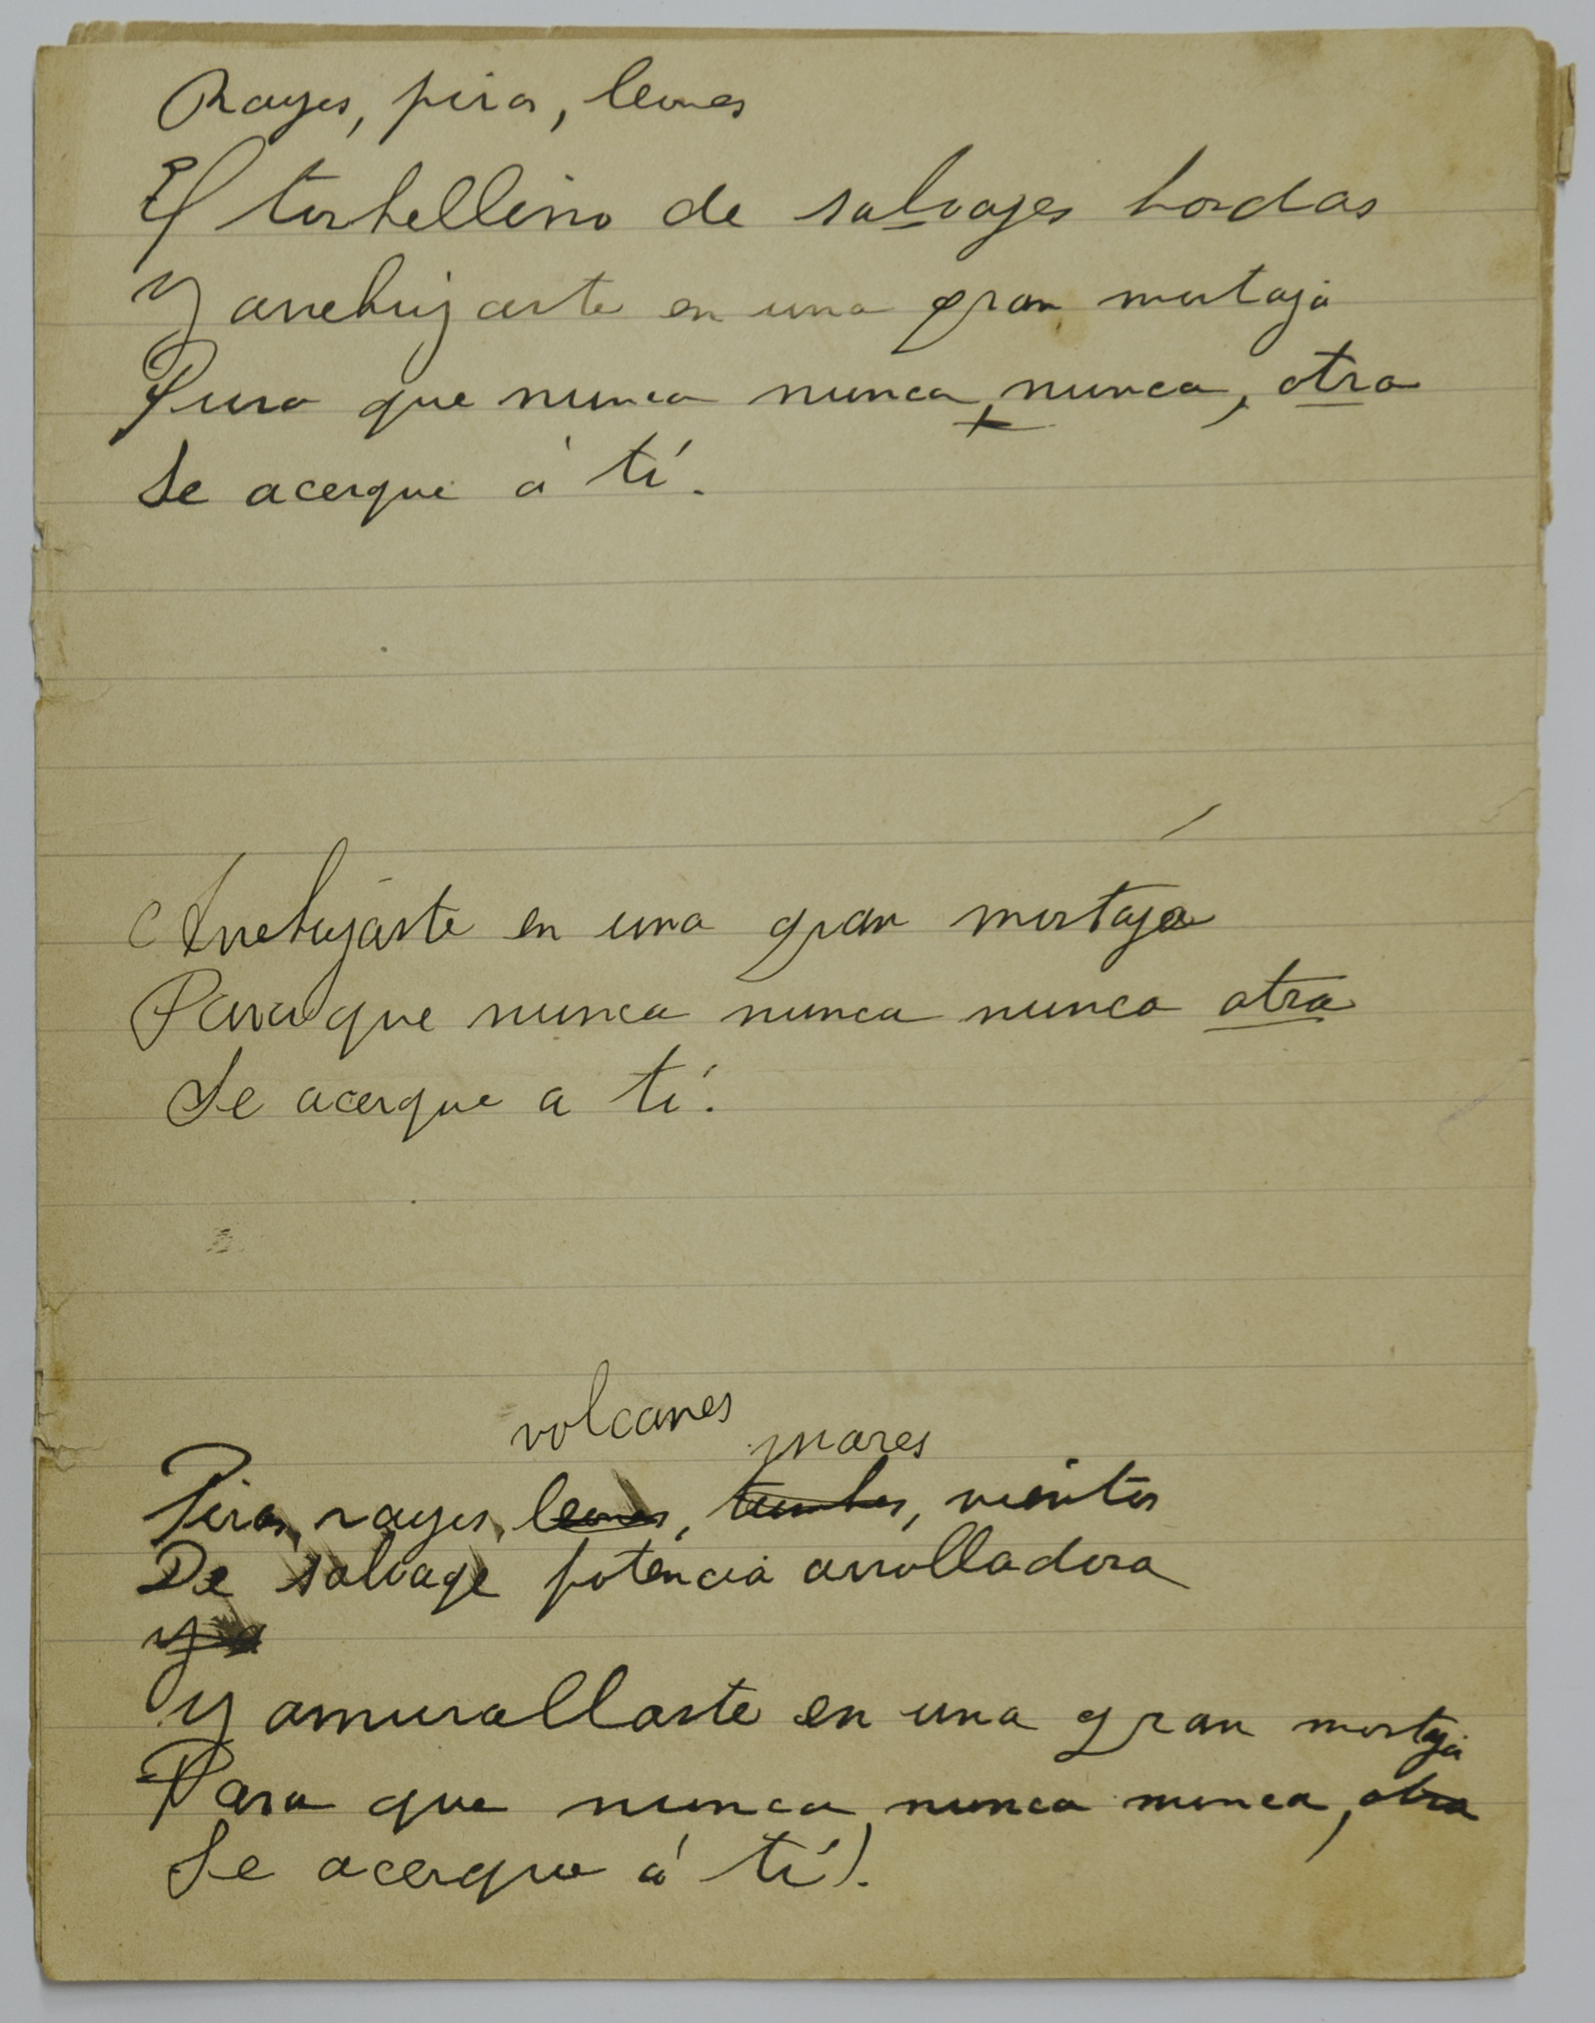 Rayos, piras, leones
El torbellino de salvajes hordas
Y arrebujarte en una gran mortaja
Para que nunca nunca, nunca, otra
Se acerque á tí.
Arrebujarte en una gran mortaja
Para que nunca nunca nunca otra
Se acerque a tí.
volcanes
mares
Piras, rayos, leones, vientos
De salvage potencia arrolladora
Y a
Y amurallarte en una gran mortaja
Para que nunca, nunca nunca, otra
Se acerque á tí).